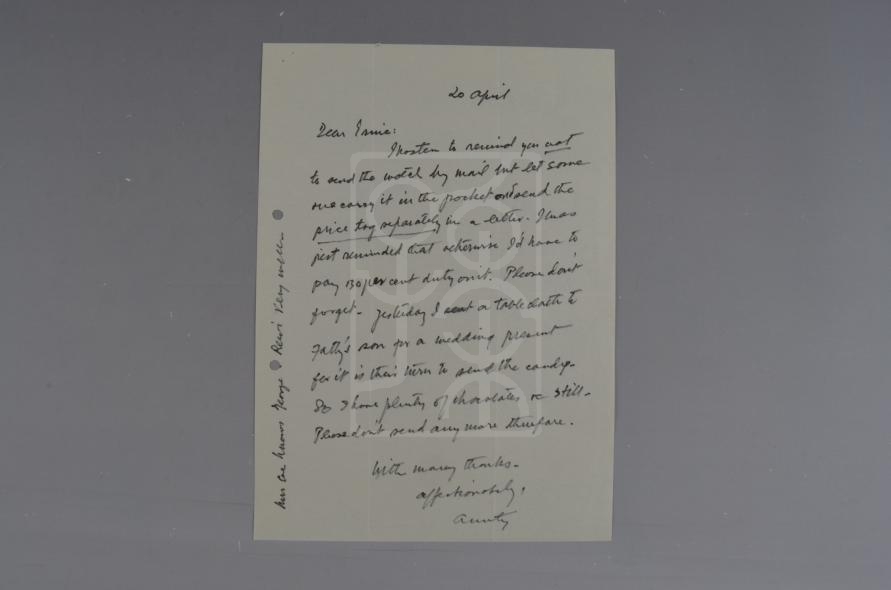 20 April
Dear Ernie:
I hasten to remind you not
to send the watch by mail but let some
one carry it in the pocket and send the
price tag separately in a letter. I was
just reminded that otherwise I'd have to
pay 130 per cent duty on it. Please don't
forget. Yesterday I sent a table cloth to
Fatty's son for a wedding present
for it is their turn to send the candy.
So I have plenty of chocolates on still.
Please don't send any more therefore.
With many thanks.
affectionately,
Aunty
knows George & Rewi very well.